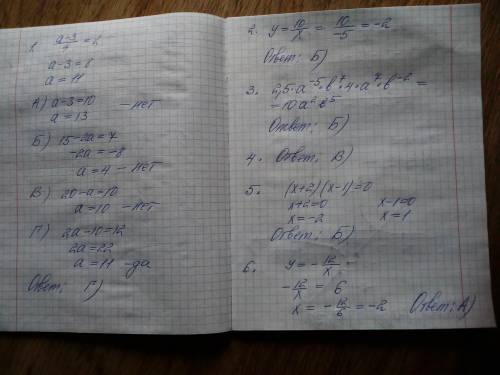 1. a-3/4 = 2
a-3=8
a=11
А) a-3=10 - нет
a=13
Б) 15-2a=7
-2a=-8
a=4 - нет
В) 20-a=10
a=10 - нет
Г) 2a-10=12
2a=22
a=11 - да
Ответ: Г)
2. y = 10/x = 10/-5 = -2
Ответ: Б)
3. 2,5·a⁻⁵·b⁷·4·a⁷·b⁻² =
=10a²b⁵
Ответ: Б)
4. Ответ: В)
5. (x+2)(x-1)=0
x+2=0 x-1=0
x=-2 x=1
Ответ: Б)
6. y = -12/x
-12/x = 6
x = -12/6 = -2 Ответ: А)